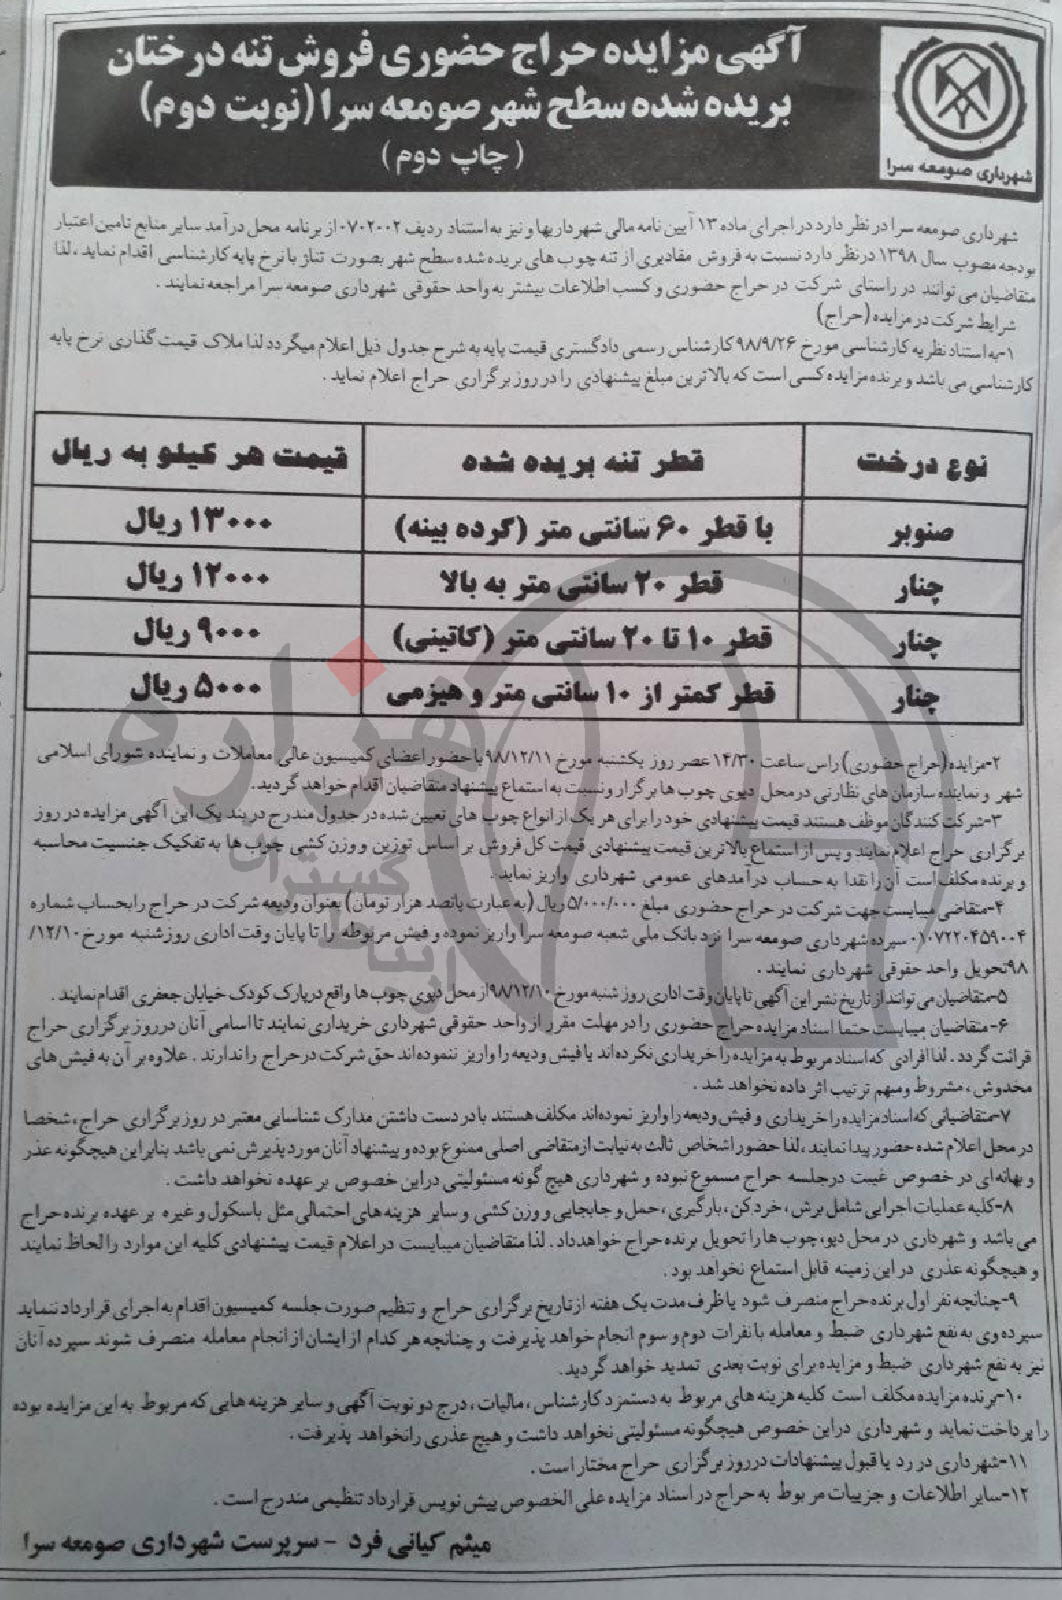 آگهی مزایده حراج حضوری فروش تنه درختان
بریده شده سطح شهر صومعه سرا (نوبت دوم)
(چاپ دوم)
شهرداری صومعه سرا
شهرداری صومعه سرا در نظر دارد در اجرای ماده ۱۳ آیین نامه مالی شهرداریها و نیز به استناد ردیف ۰۷۰۲۰۰۲ از برنامه محل درآمد سایر منابع تامین اعتبار
بودجه مصوب سال ۱۳۹۸ در نظر دارد نسبت به فروش مقادیری از تنه چوب های بریده شده سطح شهر بصورت تناژ با نرخ پایه کارشناسی اقدام نماید، لذا
متقاضیان می توانند در راستای شرکت در حراج حضوری و کسب اطلاعات بیشتر به واحد حقوقی شهرداری صومعه سرا مراجعه نمایند.
شرایط شرکت در مزایده (حراج)
۱-به استناد نظریه کارشناسی مورخ ۹۸/۹/۲۶ کارشناس رسمی دادگستری قیمت پایه به شرح جدول ذیل اعلام میگردد لذا ملاک قیمت گذاری نرخ پایه
کارشناسی می باشد و برنده مزایده کسی است که بالاترین مبلغ پیشنهادی را در روز برگزاری حراج اعلام نماید.
نوع درخت قطر تنه بریده شده قیمت هر کیلو به ریال
صنوبر با قطر ۶۰ سانتی متر (گرده بینه) ۱۳۰۰۰ ریال
چنار قطر ۲۰ سانتی متر به بالا ۱۲۰۰۰ ریال
چنار قطر ۱۰ تا ۲۰ سانتی متر (کاتینی) ۹۰۰۰ ریال
چنار قطر کمتر از ۱۰ سانتی متر و هیزمی ۵۰۰۰ ریال
۲-مزایده (حراج حضوری) راس ساعت ۱۴/۳۰ عصر روز یکشنبه مورخ ۹۸/۱۲/۱۱ با حضور اعضای کمیسیون عالی معاملات و نماینده شورای اسلامی
شهر و نماینده سازمان های نظارتی در محل دپوی چوب ها برگزار و نسبت به استماع پیشنهاد متقاضیان اقدام خواهد گردید.
۳-شرکت کنندگان موظف هستند قیمت پیشنهادی خود را برای هر یک از انواع چوب های تعیین شده در جدول مندرج در بند یک این آگهی مزایده در روز
برگزاری حراج اعلام نمایند و پس از استماع بالاترین قیمت پیشنهادی قیمت کل فروش بر اساس توزین و وزن کشی چوب ها به تفکیک جنسیت محاسبه
و برنده مکلف است آن را نقدا به حساب درآمدهای عمومی شهرداری واریز نماید.
۴-متقاضی میبایست جهت شرکت در حراج حضوری مبلغ ۵/۰۰۰/۰۰۰ ریال (به عبارت پانصد هزار تومان) بعنوان ودیعه شرکت در حراج را بحساب شماره
۰۱۰۷۲۲۰۴۵۹۰۰۴ سپرده شهرداری صومعه سرا نزد بانک ملی شعبه صومعه سرا واریز نموده و فیش مربوطه را تا پایان وقت اداری روز شنبه مورخ ۱۲/۱۰/
۹۸ تحویل واحد حقوقی شهرداری نمایند.
۵-متقاضیان می توانند از تاریخ نشر این آگهی تا پایان وقت اداری روز شنبه مورخ ۹۸/۱۲/۱۰ از محل دپوی چوب ها واقع در پارک کودک خیابان جعفری اقدام نمایند.
۶-متقاضیان میبایست حتما اسناد مزایده حراج حضوری را در مهلت مقرر از واحد حقوقی شهرداری خریداری نمایند تا اسامی آنان در روز برگزاری حراج
قرائت گردد. لذا افرادی که اسناد مربوط به مزایده را خریداری نکرده اند یا فیش ودیعه را واریز ننموده اند حق شرکت در حراج را ندارند. علاوه بر آن به فیش های
مخدوش، مشروط و مبهم ترتیب اثر داده نخواهد شد.
۷-متقاضیانی که اسناد مزایده را خریداری و فیش ودیعه را واریز نموده اند مکلف هستند با در دست داشتن مدارک شناسایی معتبر در روز برگزاری حراج، شخصا
در محل اعلام شده حضور پیدا نمایند، لذا حضور اشخاص ثالث به نیابت از متقاضی اصلی ممنوع بوده و پیشنهاد آنان مورد پذیرش نمی باشد بنابراین هیچگونه عذر
و بهانه ای در خصوص غیبت در جلسه حراج مسموع نبوده و شهرداری هیچ گونه مسئولیتی در این خصوص بر عهده نخواهد داشت.
۸-کلیه عملیات اجرایی شامل برش، خرد کن، بارگیری، حمل و جابجایی و وزن کشی و سایر هزینه های احتمالی مثل باسکول و غیره بر عهده برنده حراج
می باشد و شهرداری در محل دپو، چوب ها را تحویل برنده حراج خواهد داد. لذا متقاضیان میبایست در اعلام قیمت پیشنهادی کلیه این موارد را لحاظ نمایند
و هیچگونه عذری در این زمینه قابل استماع نخواهد بود.
۹-چنانچه نفر اول برنده حراج منصرف شود یا ظرف مدت یک هفته از تاریخ برگزاری حراج و تنظیم صورت جلسه کمیسیون اقدام به اجرای قرارداد ننماید
سپرده وی به نفع شهرداری ضبط و معامله با نفرات دوم و سوم انجام خواهد پذیرفت و چنانچه هر کدام از ایشان از انجام معامله منصرف شوند سپرده آنان
نیز به نفع شهرداری ضبط و مزایده برای نوبت بعدی تمدید خواهد گردید.
۱۰-برنده مزایده مکلف است کلیه هزینه های مربوط به دستمزد کارشناس، مالیات، درج دو نوبت آگهی و سایر هزینه هایی که مربوط به این مزایده بوده
را پرداخت نماید و شهرداری در این خصوص هیچگونه مسئولیتی نخواهد داشت و هیچ عذری را نخواهد پذیرفت.
۱۱-شهرداری در رد یا قبول پیشنهادات در روز برگزاری حراج مختار است.
۱۲-سایر اطلاعات و جزییات مربوط به حراج در اسناد مزایده علی الخصوص پیش نویس قرارداد تنظیمی مندرج است.
میثم کیانی فرد - سرپرست شهرداری صومعه سرا
هزاره
گستران